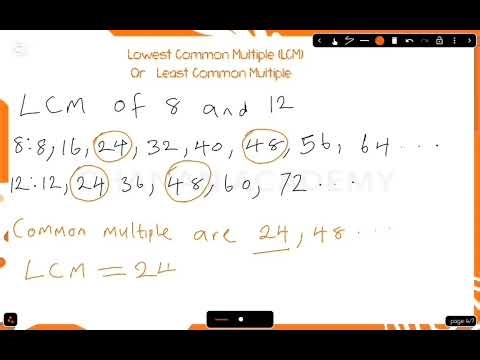 Lowest Common Multiple (LCM)
Or Least Common Multiple
LCM of 8 and 12
8:8, 16, 24, 32, 40, 48, 56, 64 ...
12:12, 24 36, 48, 60, 72 ...
ACADEMY
Common multiple are 24, 48 ...
LCM = 24
page 4/7